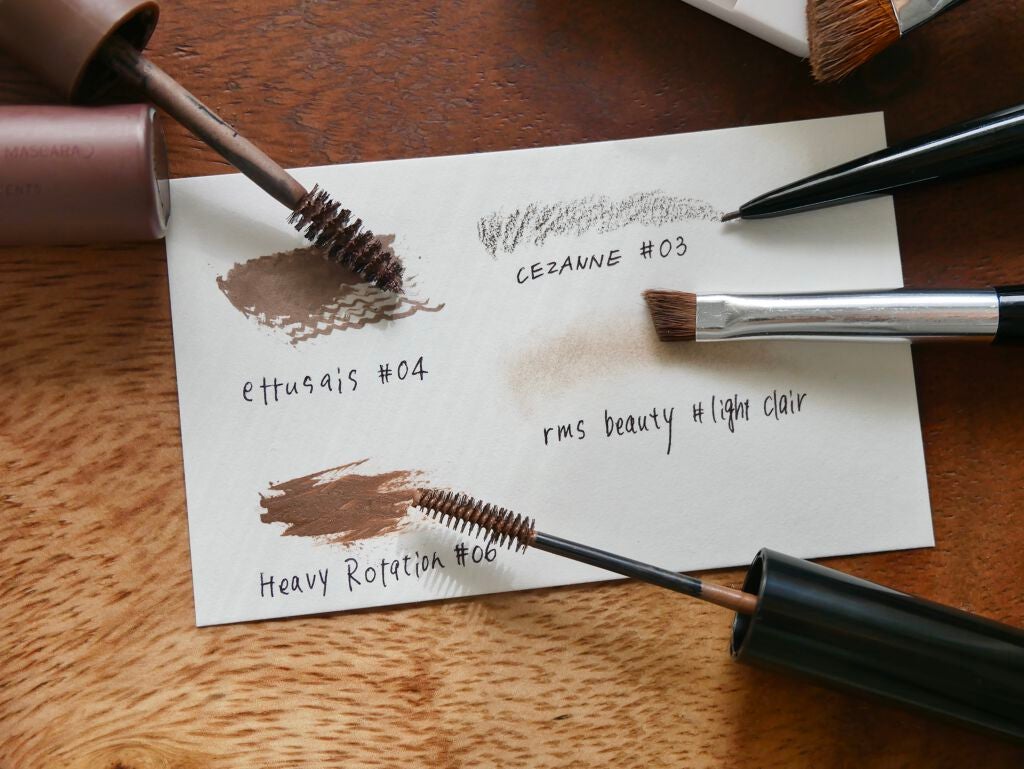 MASCARA
CEZANNE #03
ettusais #04
rms beauty #light clair
Heavy Rotation #06